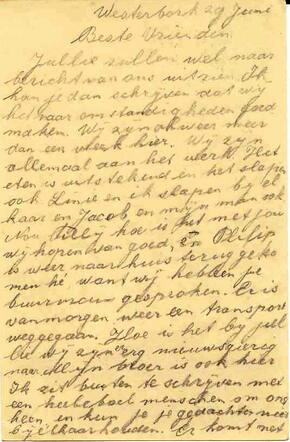 Westerbork 29 Juni
Beste Vrienden.
Jullie zullen wel naar
bericht van ons uitzien. Ik
kan je dan schrijven dat wij
het naar omstandigheden goed
maken. Wij zyn ok weer meer
dan een week hier. Wij zyn
allemaal aan het werk. Het
eten is uitstekend en het slapen
ook Linie en ik slapen by el
kaar en Jacob en mijn man ook
Nou hoe is het met jou
wij hopen van goed, en Philip
is weer naar huis terug geko
men hé want wij hebben je
buurvrouw gesproken. Er is
vanmorgen weer een transport
weggegaan. Hoe is het by jul
lie wij zyn erg nieuwsgierig
naar. Mijn broer is ook hier
Ik zit buiten te schrijven met
een heeleboel menschen om ons
heen, en kun je je gedachten niet
by elkaar houden. Er komt net